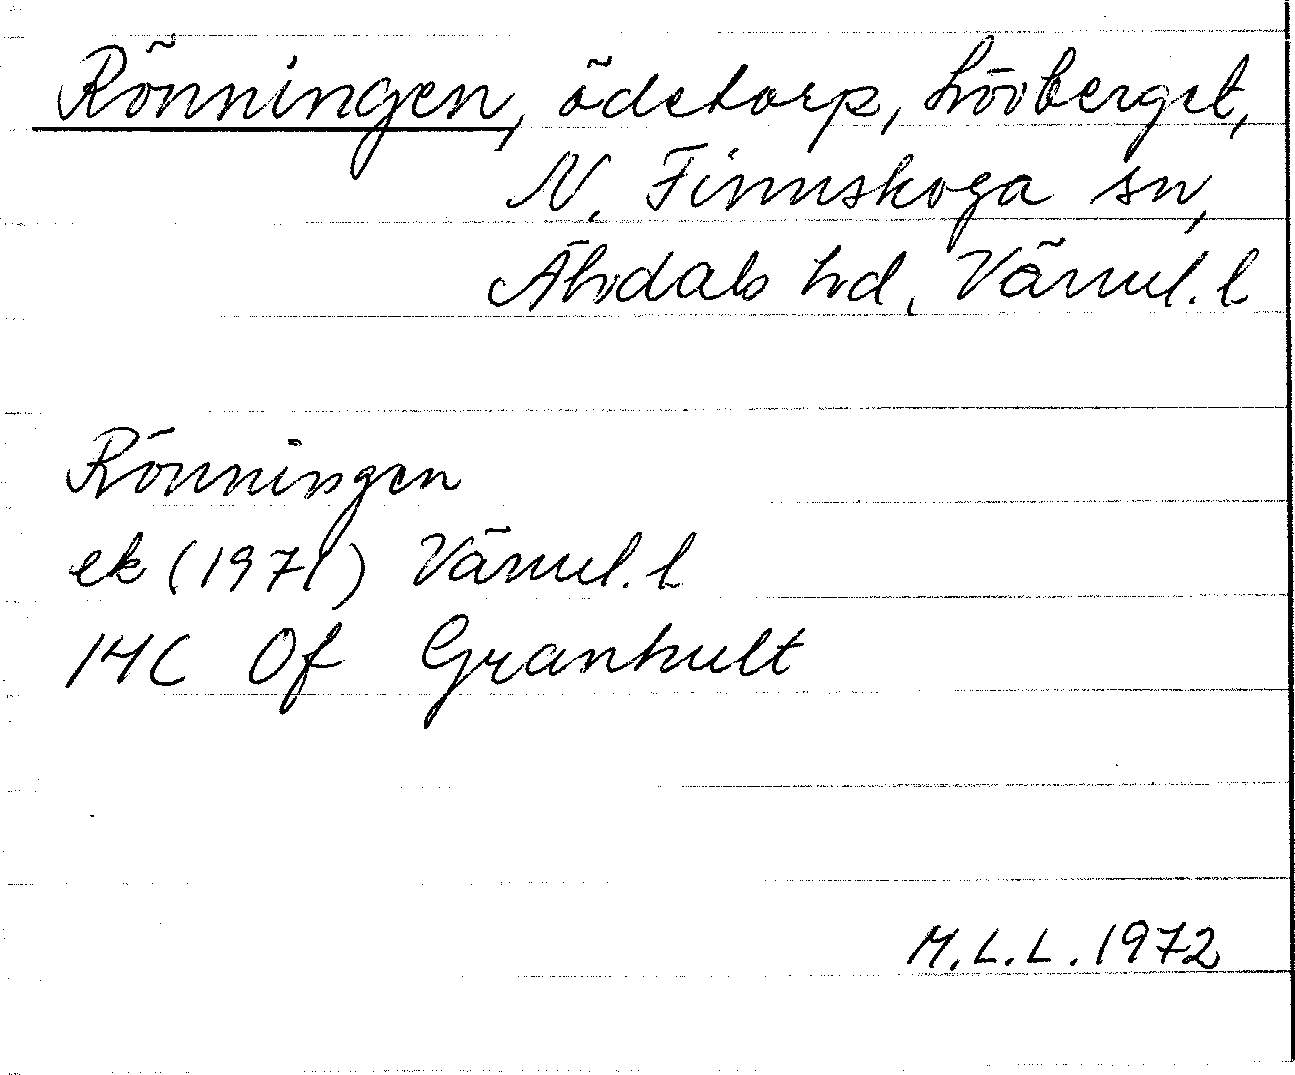 Rönningen, ödetorp, Lövberget,
N. Finnskoga sn,
Älvdals hd, Värml. l
Rönningen
ek (1971) Värml. l
14C Of Granhult
M.L.L. 1972